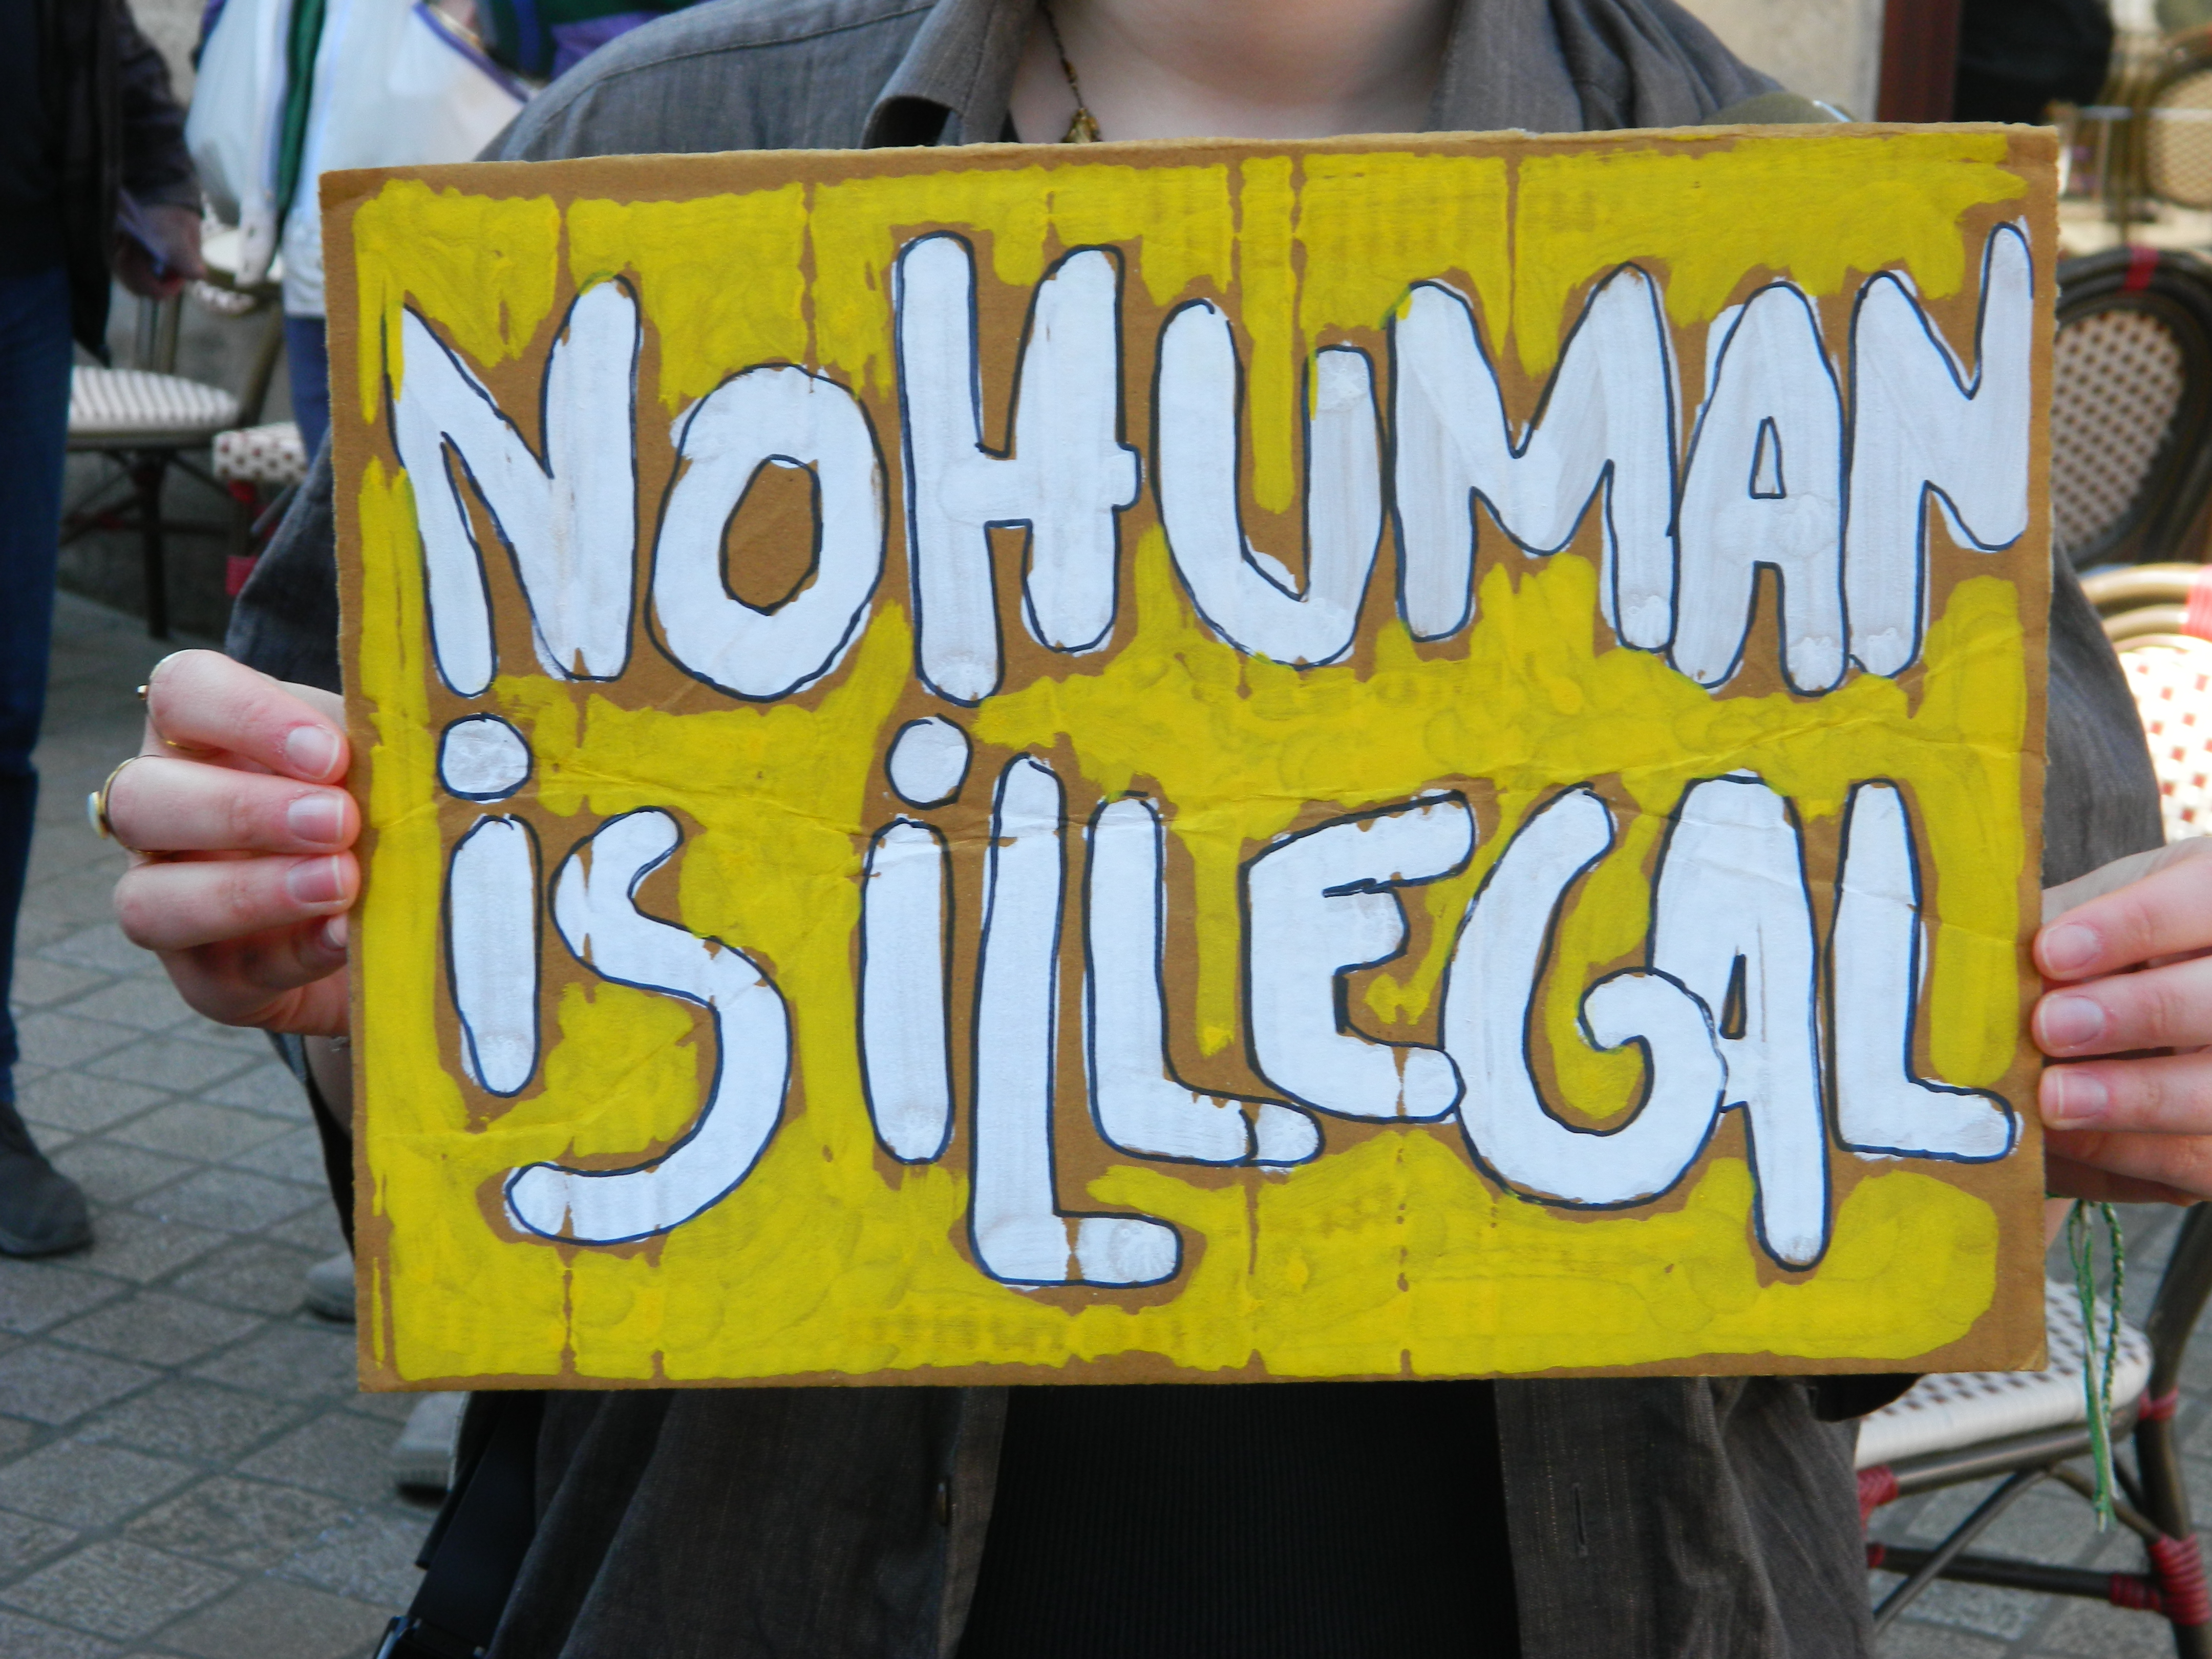 NO HUMAN
is iLLEGAL